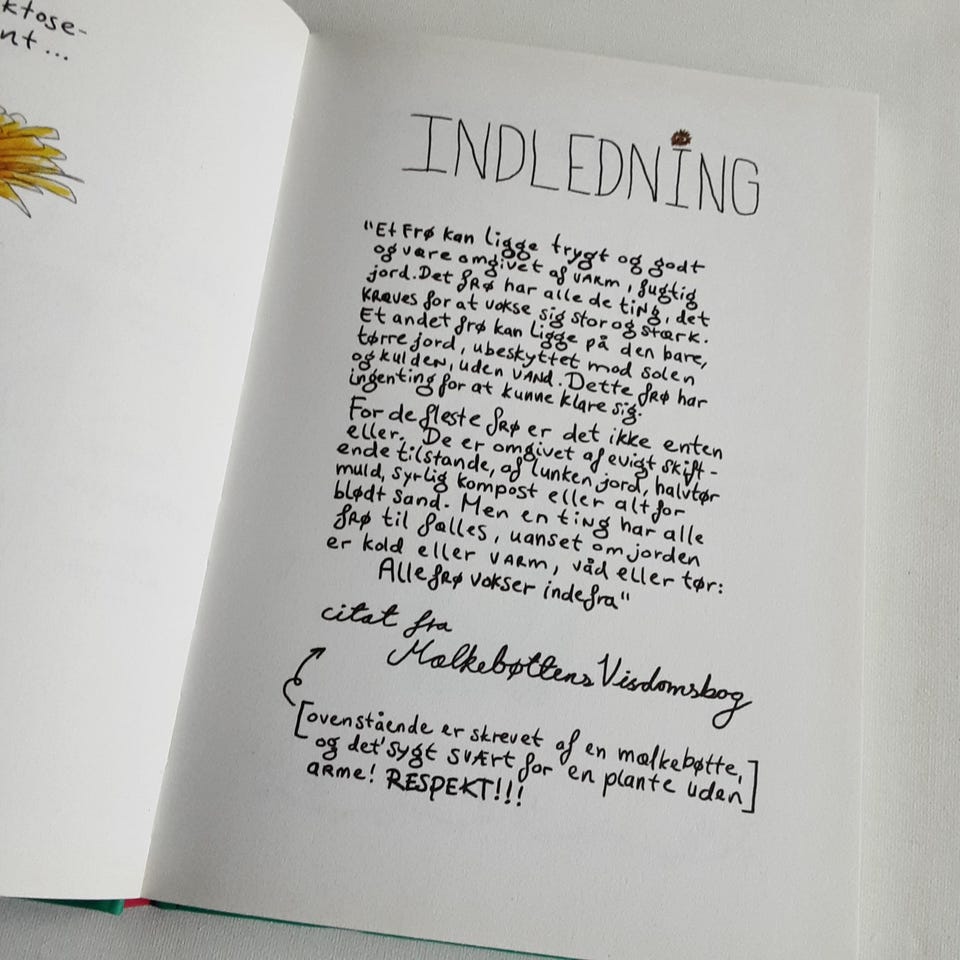 ktose-
nt...
INDLEDNING
"Et frø kan ligge trygt og godt
og være omgivet af varm, fugtig
jord. Det frø har alle de ting, det
kræves for at vokse sig stor og stærk.
Et andet frø kan ligge på den bare,
tørre jord, ubeskyttet mod solen
og kulden, uden vand. Dette frø har
ingenting for at kunne klare sig.
For de fleste frø er det ikke enten
eller. De er omgivet af evigt skift-
ende tilstande, af lunken jord, halvtør
muld, syrlig kompost eller alt for
blødt sand. Men en ting har alle
frø til fælles, uanset om jorden
er kold eller varm, våd eller tør:
Alle frø vokser indefra"
citat fra
Mælkebøttens Visdomsbog
[ovenstående er skrevet af en mælkebøtte,
og det' sygt svært for en plante uden
arme! RESPEKT!!!]